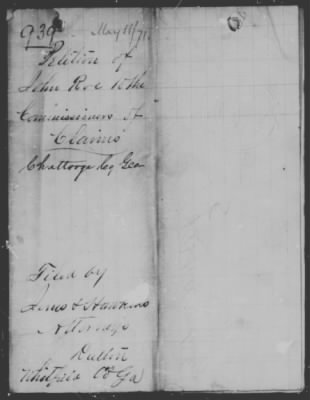 939 May 18/71
Petition of
John Roe to the
Commissioners of
Claims
Chattooga Co Geo
Filed by
& Hawkins
Attorneys
Dalton
Whitfield Co Ga